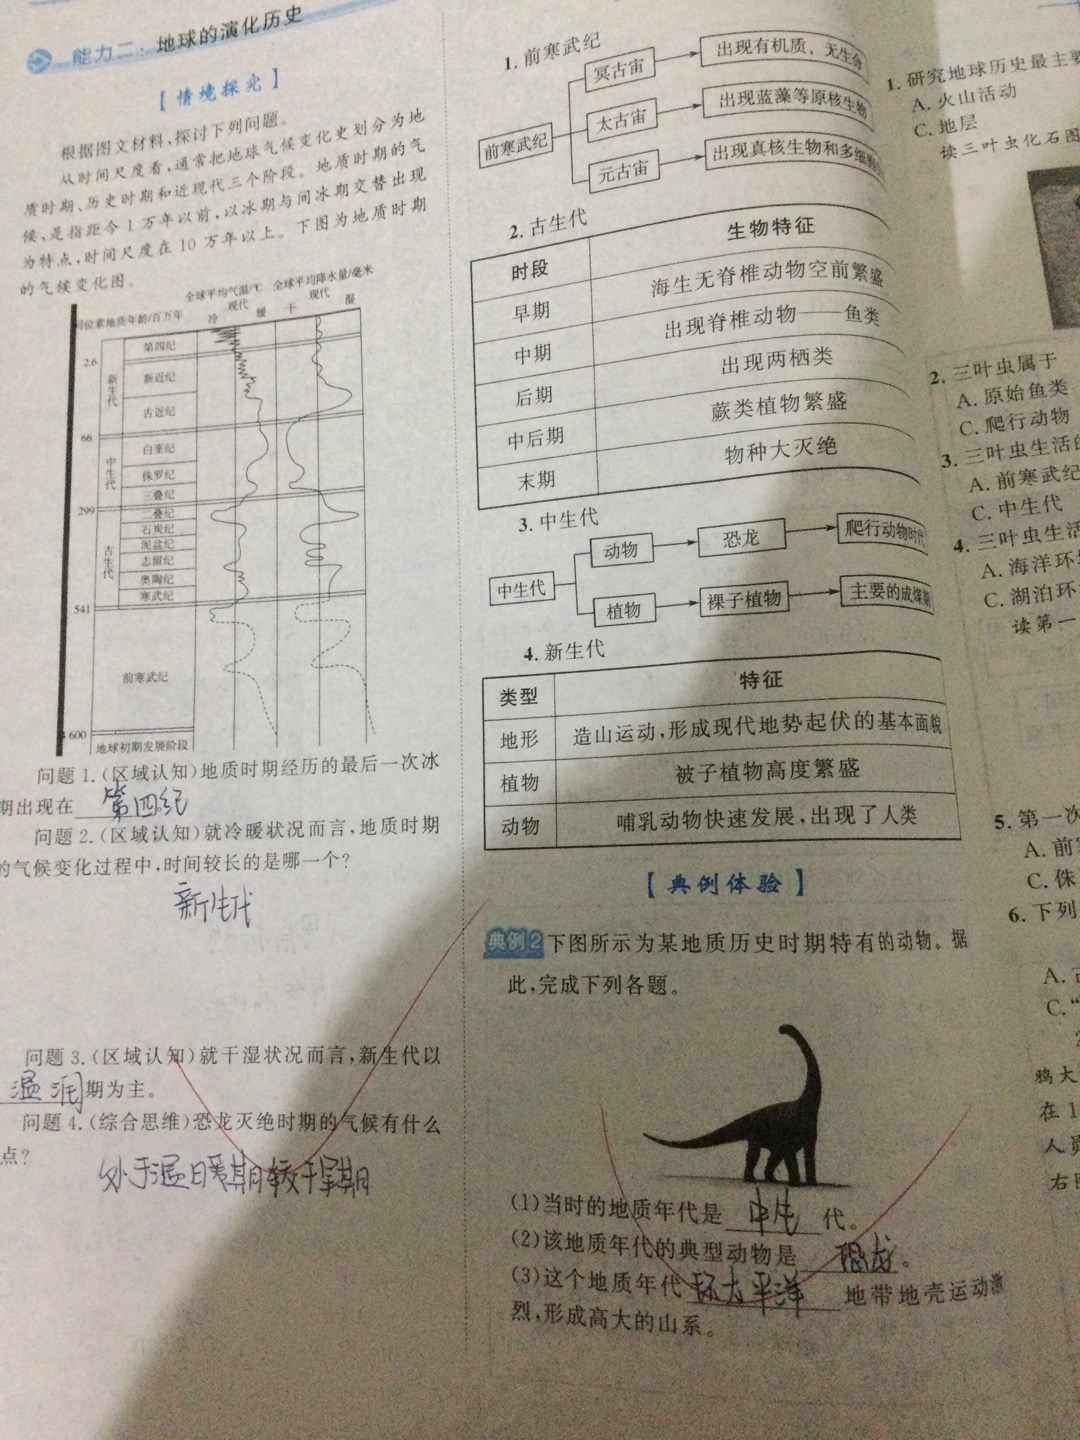 能力二：地球的演化历史
【情境探究】
根据图文材料,探讨下列问题。
从时间尺度看,通常把地球气候变化史划分为地
质时期、历史时期和近现代三个阶段。地质时期的气
候,是指距今1万年以前,以冰期与间冰期交替出现
为特点,时间尺度在10万年以上。下图为地质时期
的气候变化图。
全球平均气温/℃ 全球平均降水量/毫米
同位素地质年龄/百万年
冷 现代 暖 干 现代 湿
第四纪
2.6
新生代
新近纪
古近纪
66
中生代
白垩纪
侏罗纪
三叠纪
299
二叠纪
古生代
石炭纪
泥盆纪
志留纪
奥陶纪
寒武纪
541
前寒武纪
600
地球初期发展阶段
问题1.(区域认知)地质时期经历的最后一次冰
期出现在 第四纪
问题2.(区域认知)就冷暖状况而言,地质时期
的气候变化过程中,时间较长的是哪一个?
新生代
问题3.(区域认知)就干湿状况而言,新生代以
温润期为主。
问题4.(综合思维)恐龙灭绝时期的气候有什么
点?
处于温暖期较干旱期
1.前寒武纪
前寒武纪
冥古宙 出现有机质，无生命
太古宙 出现蓝藻等原核生物
元古宙 出现真核生物和多细胞
2.古生代
时段 生物特征
早期 海生无脊椎动物空前繁盛
中期 出现脊椎动物——鱼类
后期 出现两栖类
中后期 蕨类植物繁盛
末期 物种大灭绝
3.中生代
中生代
动物 恐龙 爬行动物时代
植物 裸子植物 主要的成煤期
4.新生代
类型 特征
地形 造山运动,形成现代地势起伏的基本面貌
植物 被子植物高度繁盛
动物 哺乳动物快速发展,出现了人类
【典例体验】
典例2 下图所示为某地质历史时期特有的动物。据
此,完成下列各题。
(1)当时的地质年代是 中生 代。
(2)该地质年代的典型动物是 恐龙。
(3)这个地质年代 环太平洋 地带地壳运动激
烈,形成高大的山系。
1.研究地球历史最主要
A.火山活动
C.地层
读三叶虫化石图
2.三叶虫属于
A.原始鱼类
C.爬行动物
3.三叶虫生活的
A.前寒武纪
C.中生代
4.三叶虫生活
A.海洋环境
C.湖泊环
读第一
5.第一次
A.前寒
C.侏
6.下列
A.古
C.“
鸦大
在1
人员
右图